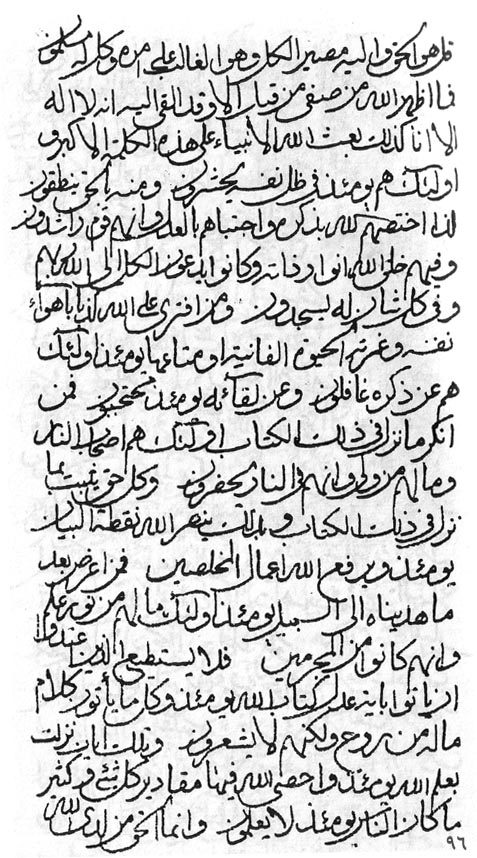 قل هو الحق واليه مصير الكل وهو الغالب على امره وكل له
فما اظهر الله من صنفى من قبل الا وقد القى اليه انه لا اله
الا انا كذلك بعث الله الانبياء على هذه الكلمة الاكبر و
اولئك هم يومئذ فى ظل نفسه يحشرون ومنه الحق ينطقون
لذا اختصهم لله بذكره واجتباهم بالعدل وانهم قوم راشدون
وفيهم خلق الله انوار ذاته وكانوا يدعون الكل الى الله ربهم
وفى كل شان له يسجدون ومن افترى على الله كذبا باهواء
نفسه وغرته الحيوة الفانية او متاعها يومئذ اولئك
هم عن ذكره غافلون وعن لقائه يومئذ محتجبون فمن
انكر ما نزل فى ذلك الكتاب اولئك هم اصحاب النار
وما لهم من ولى وانهم فى النار يحضرون وكل حق يثبت بما
نزل فى ذلك الكتاب وبذلك ينصر الله نقطة البيان
يومئذ ويرفع الله اعمال المخلصين فمن اعرض بعد
ما هديناه الى السبيل يومئذ اولئك ما لهم من نور علم
وانهم كانوا من المجرمين فلا يستطيع الذين عندوا
ان ياتوا باية عدل كتاب الله يومئذ وكل ما يأتون كلام
ماله من روح ولكنهم لا يشعرون وتلك ايات نزلت
بعلم الله يومئذ واحصى الله فيها مقادير كل شئ وكثير
ما كان الناس يومئذ لا يعلمون وانما الحق من لدى الله
٩٦